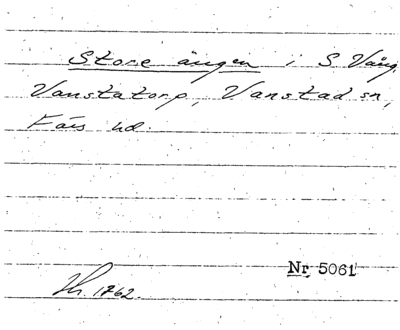 Store ängen i S. Vång,
Vanstatorp, Vanstad sn,
Färs hd.
Nr 5061
1762.